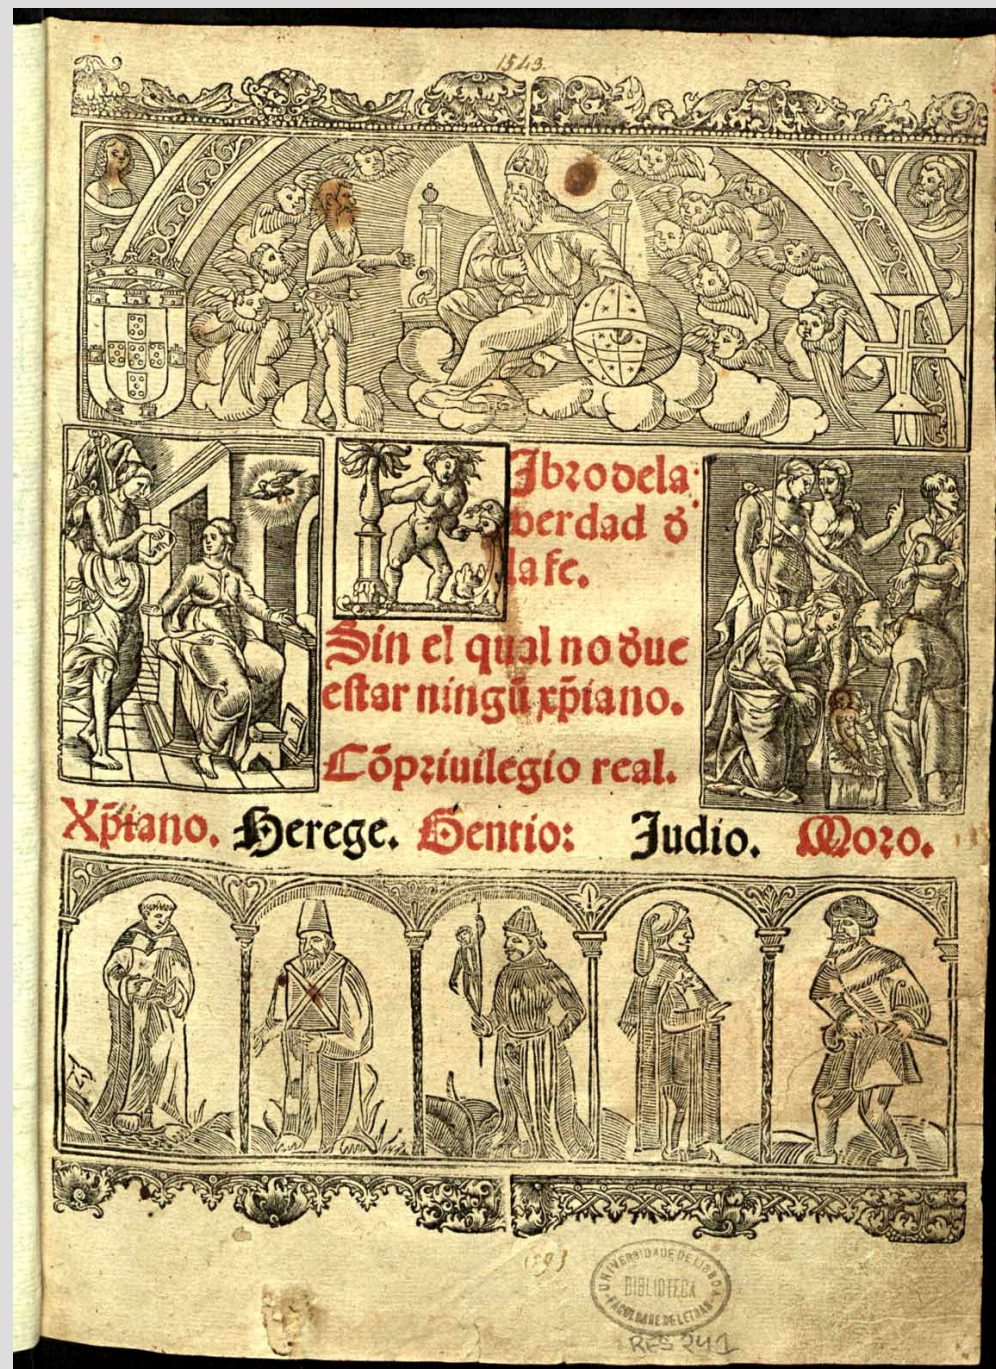 1543.
Libro dela
verdad ð
la fe.
Sin el qual no ðue
estar ningũ xp̄iano.
Cõ priuilegio real.
Xp̄iano. Herege. Gentio: Judio. Moro.
UNIVERSIDADE DE LISBOA
BIBLIOTECA
FACULDADE DE LETRAS
RES 241